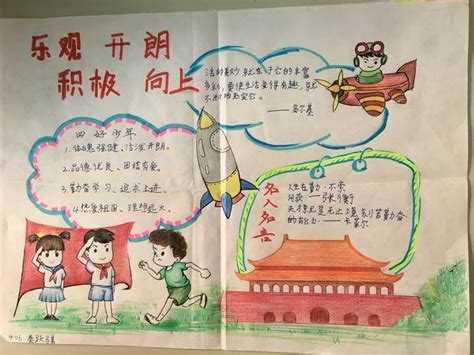 乐观 开朗
积极 向上
活的美妙就在于它的丰富
多彩,要使生活变得有趣,就
不断地充实它。
——高尔基
四好少年
1.体魄强健、活泼开朗。
2.品德优良、团结友爱。
3.勤奋学习、追求上进。
4.热爱祖国、理想远大。
名人名言
人生在勤,不索
何获 ——张衡
天才就是无止境刻苦勤奋
的能力 ——卡莱尔